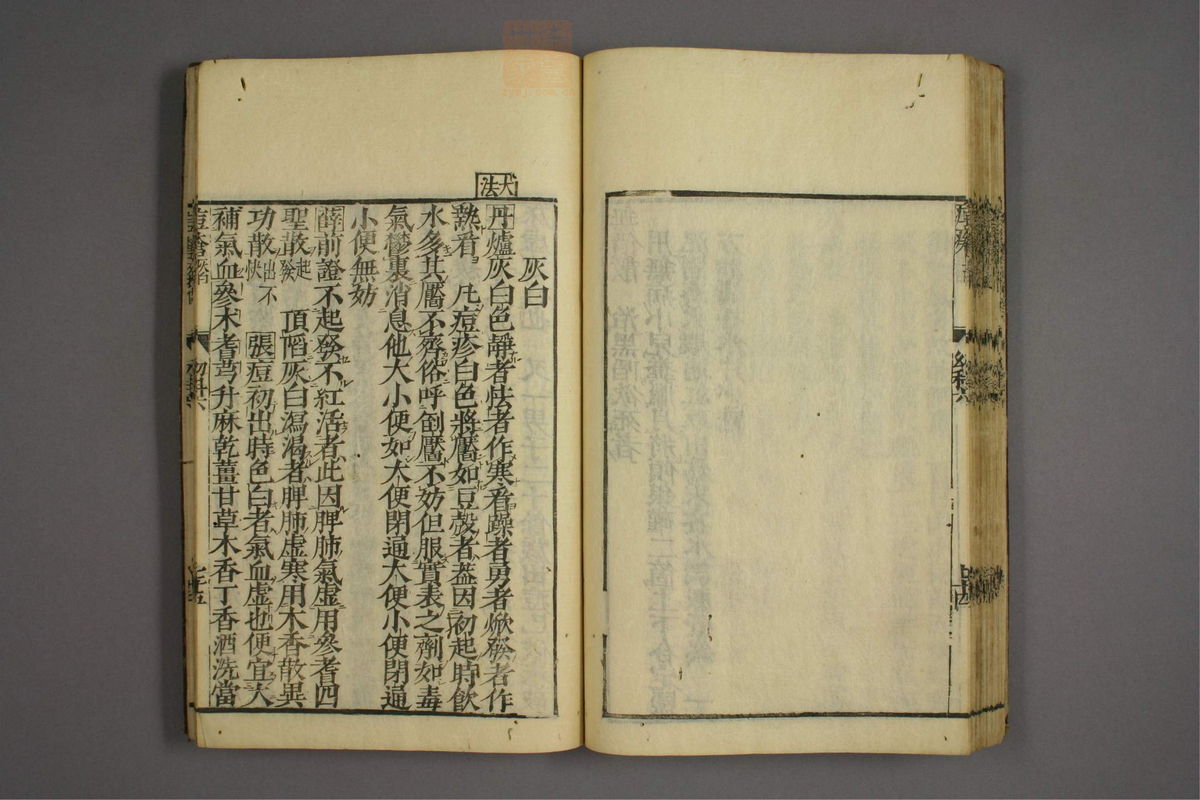 大法
灰白
丹爐灰白色靜者怯者作寒看躁者勇者焮發者作
熱看 凡痘疹白色將靨如豆殼者蓋因初起時飲
水多其靨不齊俗呼倒靨不妨但服實表之劑如毒
氣鬱裏消息他大小便如大便閉通大便小便閉通
小便無妨
薛前證不起發不紅活者此因脾肺氣虛用參耆四
聖散起發 頂陷灰白瀉渴者脾肺虛寒用木香散異
功散出不快 張痘初出時色白者氣血虛也便宜大
補氣血參朮耆芎升麻乾薑甘草木香丁香酒洗當
七十五